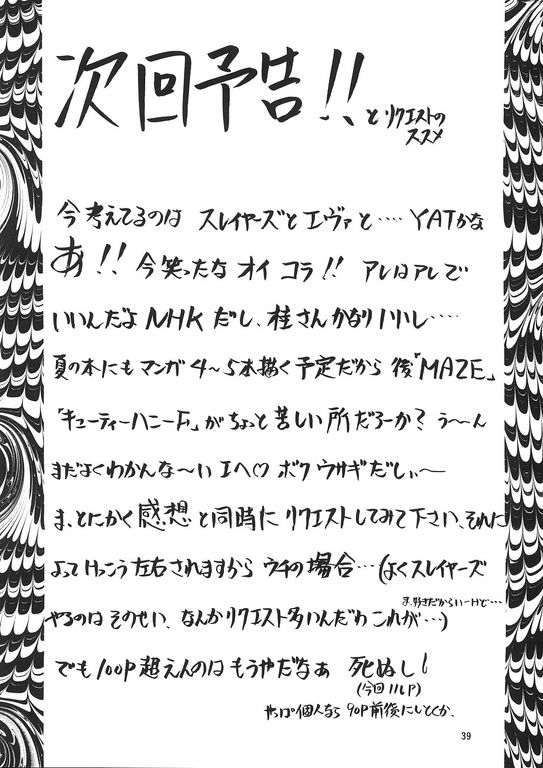 次回予告!! とリクエストの
ススメ
今考えてるのは スレイヤーズとエヴァと‥‥YATかな
あ!! 今笑ったな オイ コラ!! アレはアレで
いいんだよ NHKだし、桂さんかなりいいし‥‥
夏の本にもマンガ4〜5本描く予定だから 後「MAZE」
「キューティーハニーF」がちょっと苦しい所だろーか? う〜ん
まだよくわかんな〜い エヘ♡ ボク ウサギだしぃ〜
ま、とにかく感想と同時にリクエストしてみて下さい、それに
よってけっこう左右されますから ウチの場合‥‥(よくスレイヤーズ
やるのは そのせい、なんかリクエスト多いんだわ これが‥‥)
ま、好きだからいーけど‥‥
でも100P超えんのは もうやだなぁ 死ぬし!
(今回116P)
やっぱ個人なら 90P前後にしとくか、
39